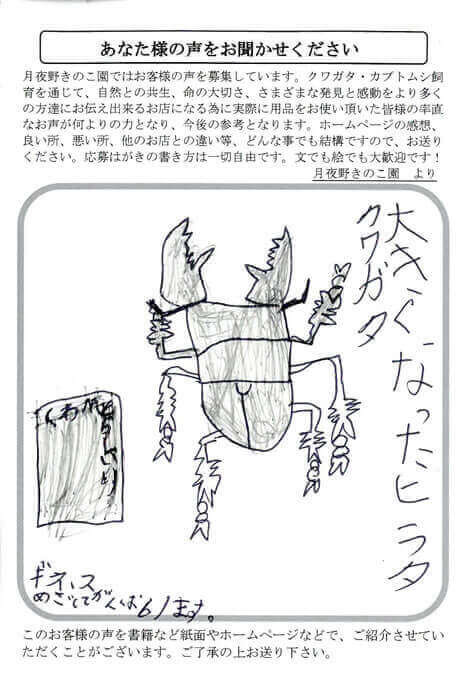 あなた様の声をお聞かせください
月夜野きのこ園ではお客様の声を募集しています。クワガタ・カブトムシ飼
育を通じて、自然との共生、命の大切さ、さまざまな発見と感動をより多く
の方達にお伝え出来るお店になる為に実際に用品をお使い頂いた皆様の率直
なお声が何よりの力となり、今後の参考となります。ホームページの感想、
良い所、悪い所、他のお店との違い等、どんな事でも結構ですので、お送り
ください。応募はがきの書き方は一切自由です。文でも絵でも大歓迎です！
月夜野きのこ園　より
大きくなったヒラタ
クワガタ
ギネス
めざしてがんばります。
このお客様の声を書籍など紙面やホームページなどで、ご紹介させてい
ただくことがございます。ご了承の上お送り下さい。